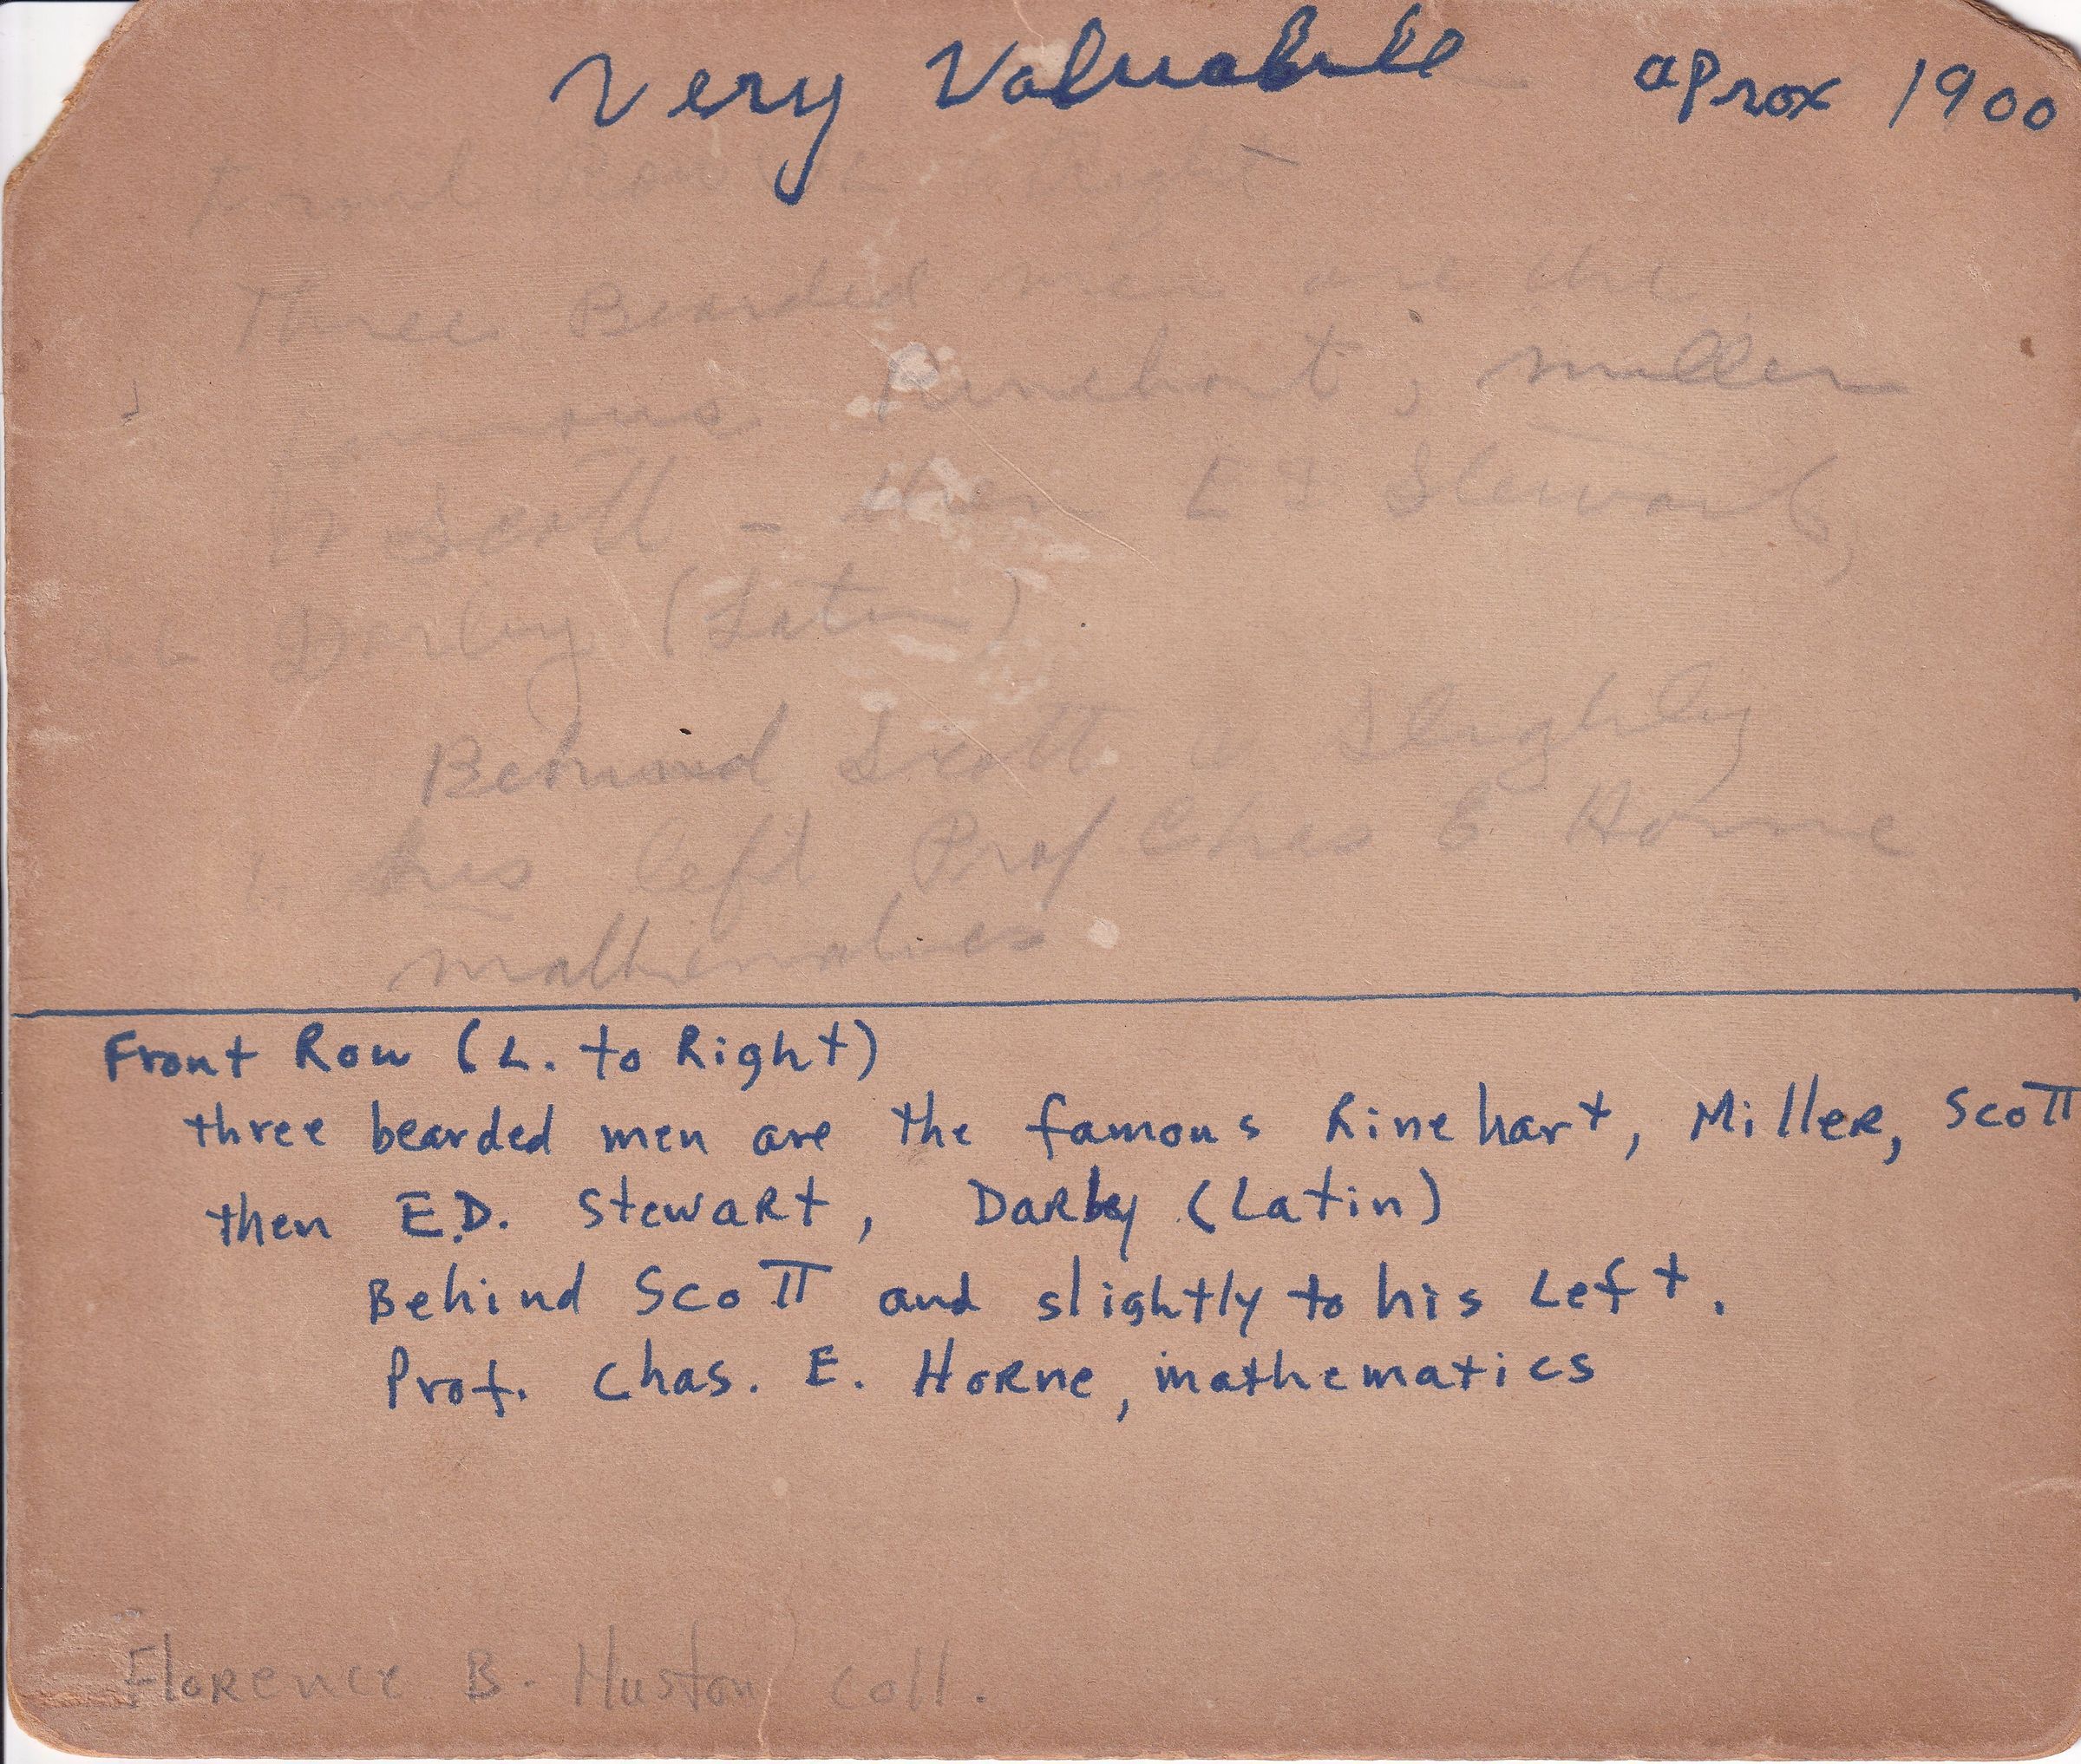 Very Valuabull aprox 1900
Front Row L to Right
Three Bearded men are the
famous Rinehart, Miller
Scott - then E D Stewart,
Darby (Latin)
Behind Scott & slightly
his left Prof Chas E Horne
mathematics
Front Row (L. to Right)
three bearded men are the famous Rinehart, Miller, Scott
then E.D. Stewart, Darby (Latin)
Behind Scott and slightly to his Left.
Prof. Chas. E. Horne, mathematics
Florence B. Huston Coll.